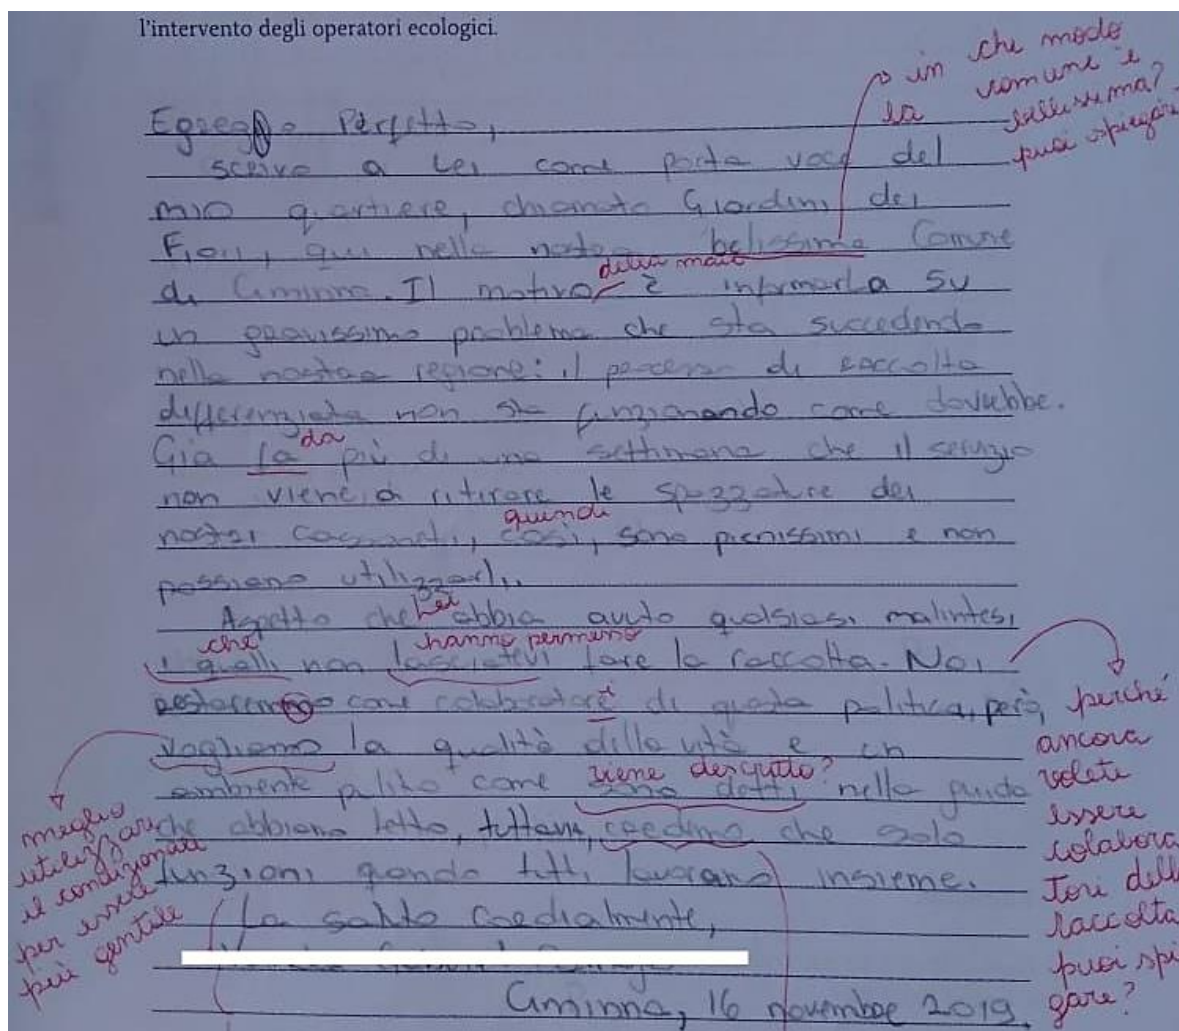 l'intervento degli operatori ecologici.
Egregio Perfetto,
scrivo a Lei come porta voce del
mio quartiere, chiamato Giardini dei
Fiori, qui nella nostra belissima Comune
di Ciminna. Il motivo è informarLa su
un gravissimo problema che sta succedendo
nella nostra regione: il processo di raccolta
differenziata non sta funzionando come dovrebbe.
Già fa più di una settimana che il servizio
non viene a ritirare le spazzature dei
nostri cassonetti, così, sono pienissimi e non
possiamo utilizzarli.
Aspetto che abbia avuto qualsiasi malintesi,
i quali non lasciatevi fare la raccolta. Noi
restaremo come colaboratore di questa politica, però,
vogliamo la qualità della vita e un
ambiente pulito come sono detti nella guida
che abbiamo letto, tuttavia, credimo che solo
funzioni quando tutti lavorano insieme.
La saluto cordialmente,
Ciminna, 16 novembre 2019.
in che modo
la comune è
bellissima?
puoi spiegare
della mail
da
quindi
Lei
che
hanno permesso
i
viene descritto?
perché
ancora
volete
essere
colabora
tori dell
raccolta
puoi spi
gare?
meglio
utilizzare
il condizionale
per essere
più gentile